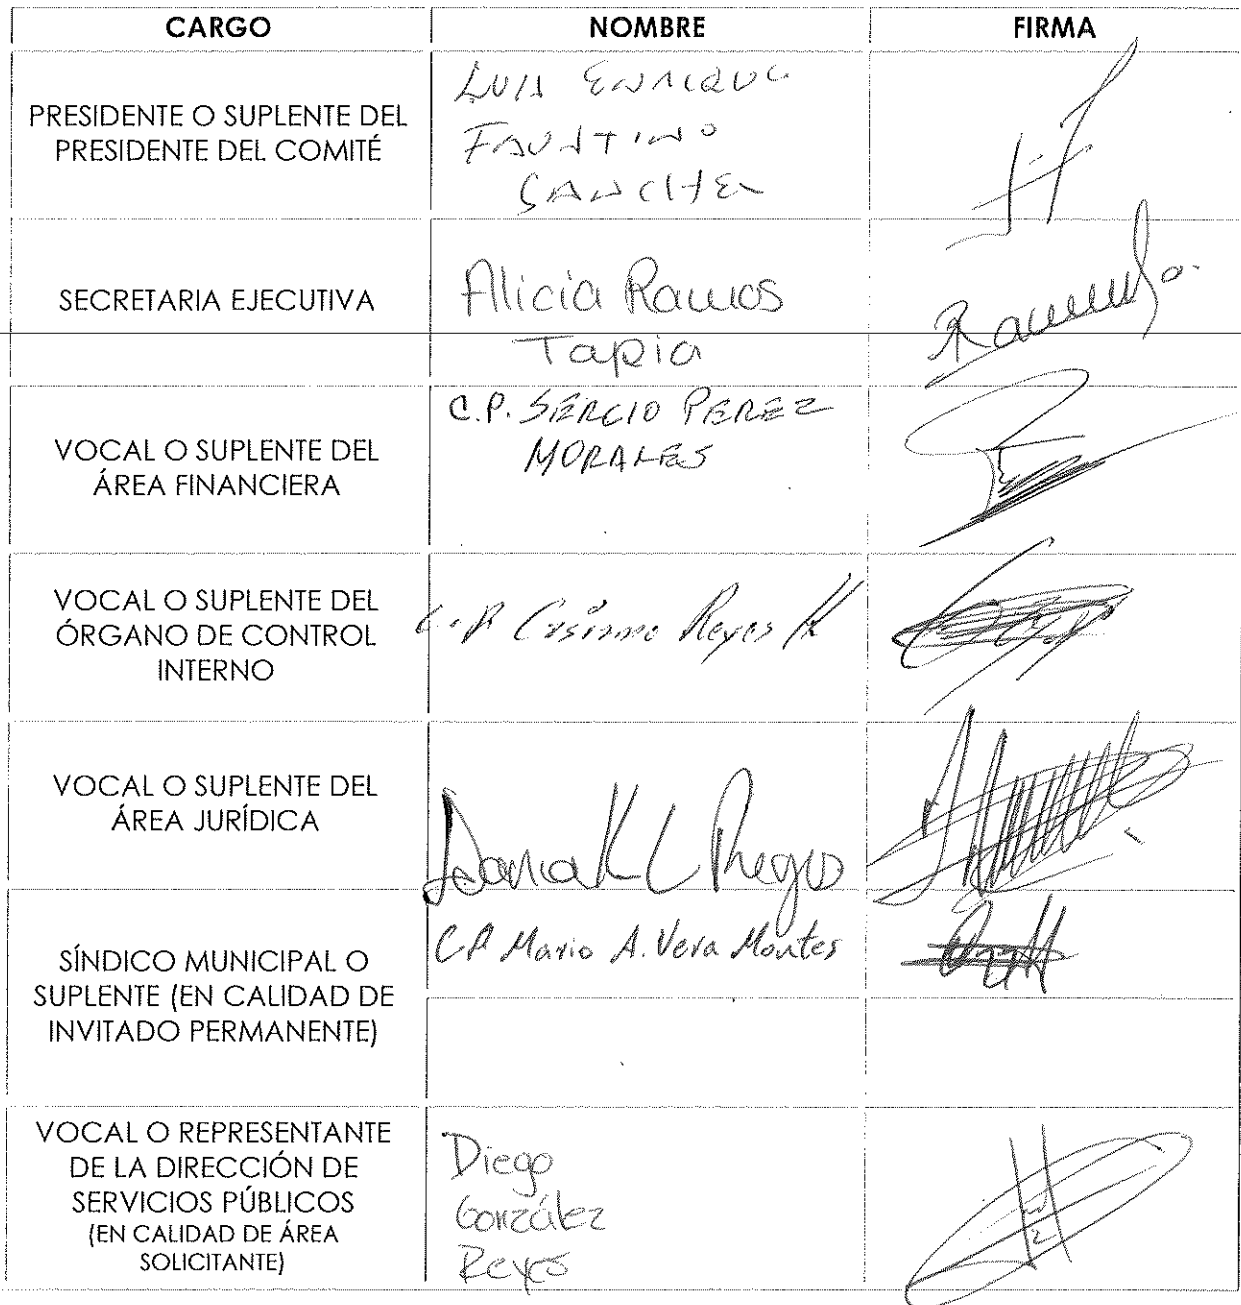 CARGO
NOMBRE
FIRMA
PRESIDENTE O SUPLENTE DEL
PRESIDENTE DEL COMITÉ
LUIS ENRIQUE
FAUSTINO
SANCHEZ
SECRETARIA EJECUTIVA
Alicia Ramos
Tapia
VOCAL O SUPLENTE DEL
ÁREA FINANCIERA
C.P. SERGIO PEREZ
MORALES
VOCAL O SUPLENTE DEL
ÓRGANO DE CONTROL
INTERNO
C.P. Casimiro Reyes
VOCAL O SUPLENTE DEL
ÁREA JURÍDICA
Dana K L
SÍNDICO MUNICIPAL O
SUPLENTE (EN CALIDAD DE
INVITADO PERMANENTE)
C.P. Mario A. Vera Montes
VOCAL O REPRESENTANTE
DE LA DIRECCIÓN DE
SERVICIOS PÚBLICOS
(EN CALIDAD DE ÁREA
SOLICITANTE)
Diego
González
Reyes